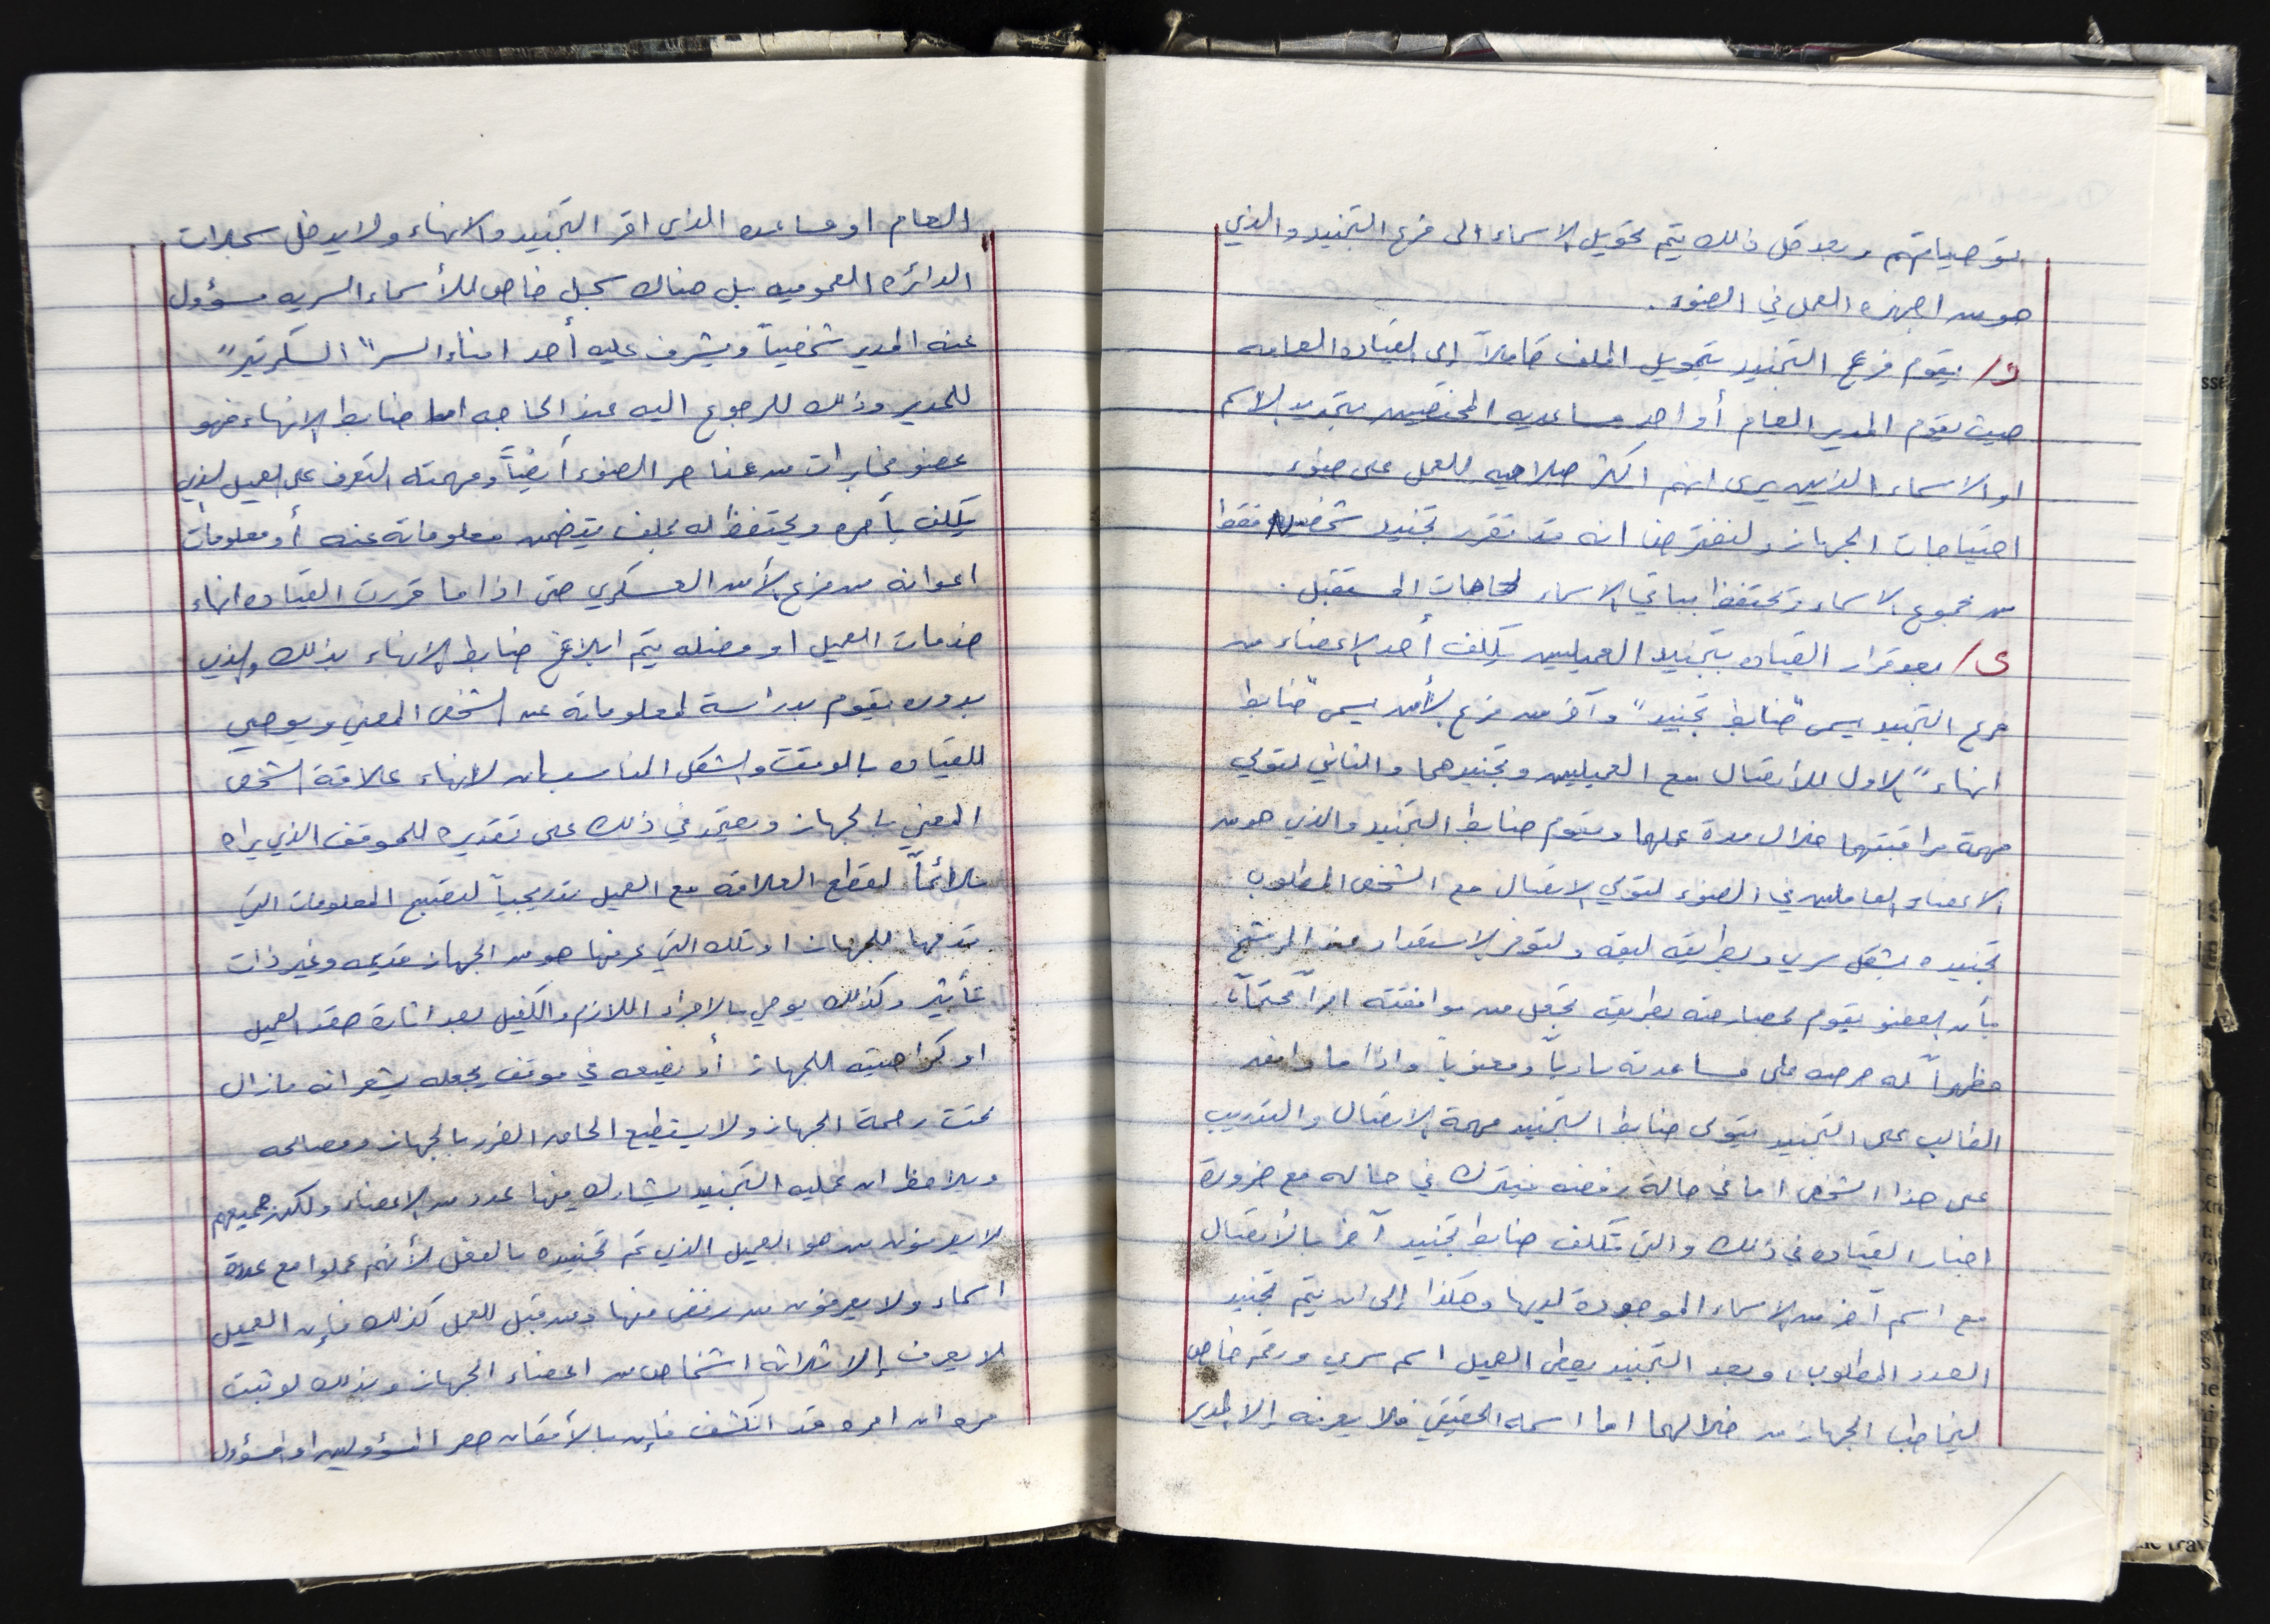 توصياتهم وبعد كل ذلك يتم تحويل الاسماء الى فرع التجنيد والذي
هو من اجهزه العمل في الضوء.
و/ يقوم فرع التجنيد بتحويل الملف كاملاً إلى القياده العامه
حيث يقوم المدير العام أو احد مساعديه المختصين بتحديد الاسم
او الاسماء الذين يرى انهم اكثر صلاحيه للعمل على ضوء
احتياجات الجهاز ولنفترض انه قد تقرر تجنيد شخصين فقط
من مجموع الاسماء وتحتفظ بباقي الاسماء لحاجات المستقبل.
ى/ بعد قرار القياده بتجنيد العميلين يكلف أحد الاعضاء من
فرع التجنيد يسمى "ضابط تجنيد" وآخر من فرع الأمن يسمى "ضابط
انهاء" الاول للأتصال مع العميلين وتجنيدهما والثاني لتولي
مهمة مراقبتهما خلال مدة عملهما ويقوم ضابط التجنيد والذي هو من
الاعضاء العاملين في الضوء لتولي الاتصال مع الشخص المطلوب
تجنيده بشكل سري وبطريقه لبقه ولتوفر الاستعداد عند المرشح
بأن العضو يقوم بمصارحته بطريقه تجعل من موافقته امراً محتماً
مظهراً له حرصه على مساعدته مادياً ومعنوياً واذا ما وافق
الطالب على التجنيد يتولى ضابط التجنيد مهمة الاتصال والتدريب
على هذا الشخص اما في حالة رفضه فيترك في حاله مع ضرورة
اخبار القياده في ذلك والتي تكلف ضابط تجنيد آخر بالأتصال
مع اسم آخر من الاسماء الموجودة لديها وهكذا إلى ان يتم تجنيد
العدد المطلوب، وبعد التجنيد يعطى العميل اسم سري ورقم خاص
ليخاطب الجهاز من خلالهما اما اسمه الحقيقي فلا يعرفه إلا المدير
العام او مساعده الذي اقر التجنيد والانهاء ولا يدخل سجلات
الدائره العموميه بل هناك سجل خاص للأسماء السريه مسؤول
عنه المدير شخصياً ويشرف عليه أحد امناء السر "السكرتير"
للمدير وذلك للرجوع اليه عند الحاجه اما ضابط الانهاء فهو
عضو مخابرات من عناصر الضوء أيضاً ومهمته التعرف على العميل الذي
يكلف بأمره ويحتفظ له بملف يتضمن معلوماته عنه أو معلومات
اعوانه من فرع الأمن العسكري حتى اذا ما قررت القياده انهاء
خدمات العميل او فصله يتم ابلاغ ضابط الانهاء بذلك والذي
بدوره يقوم بدراسة لمعلوماته عن الشخص المعني ويوصي
للقياده بالوقت والشكل المناسبان لانهاء علاقة الشخص
المعني بالجهاز ويعتمد في ذلك على تقديره للموقف الذي يراه
ملائماً لقطع العلاقه مع العميل تدريجياً لتصبح المعلومات التي
قدمها للجهاز او تلك التي عرفها هو من الجهاز قديمه وغير ذات
تأثير وكذلك يوصي بالاجراء اللازم والكفيل بعدم اثارة حقد العميل
او كراهيته للجهاز أو يضعه في موقف يجعله يشعر انه مازال
تحت رحمة الجهاز ولا يستطيع الحاق الضرر بالجهاز ومصالحه
ويلاحظ ان عمليه التجنيد يشارك فيها عدد من الاعضاء ولكن جميعهم
لا يعرفون من هو العميل الذي تم تجنيده بالفعل لأنهم عملوا مع عدة
اسماء ولا يعرفون من رفض منها ومن قبل للعمل كذلك فإن العميل
لا يعرف إلا ثلاثه اشخاص من اعضاء الجهاز وبذلك لو ثبت
مره ان امره قد انكشف فإن بالأمكان حصر المسؤولين او المسؤول